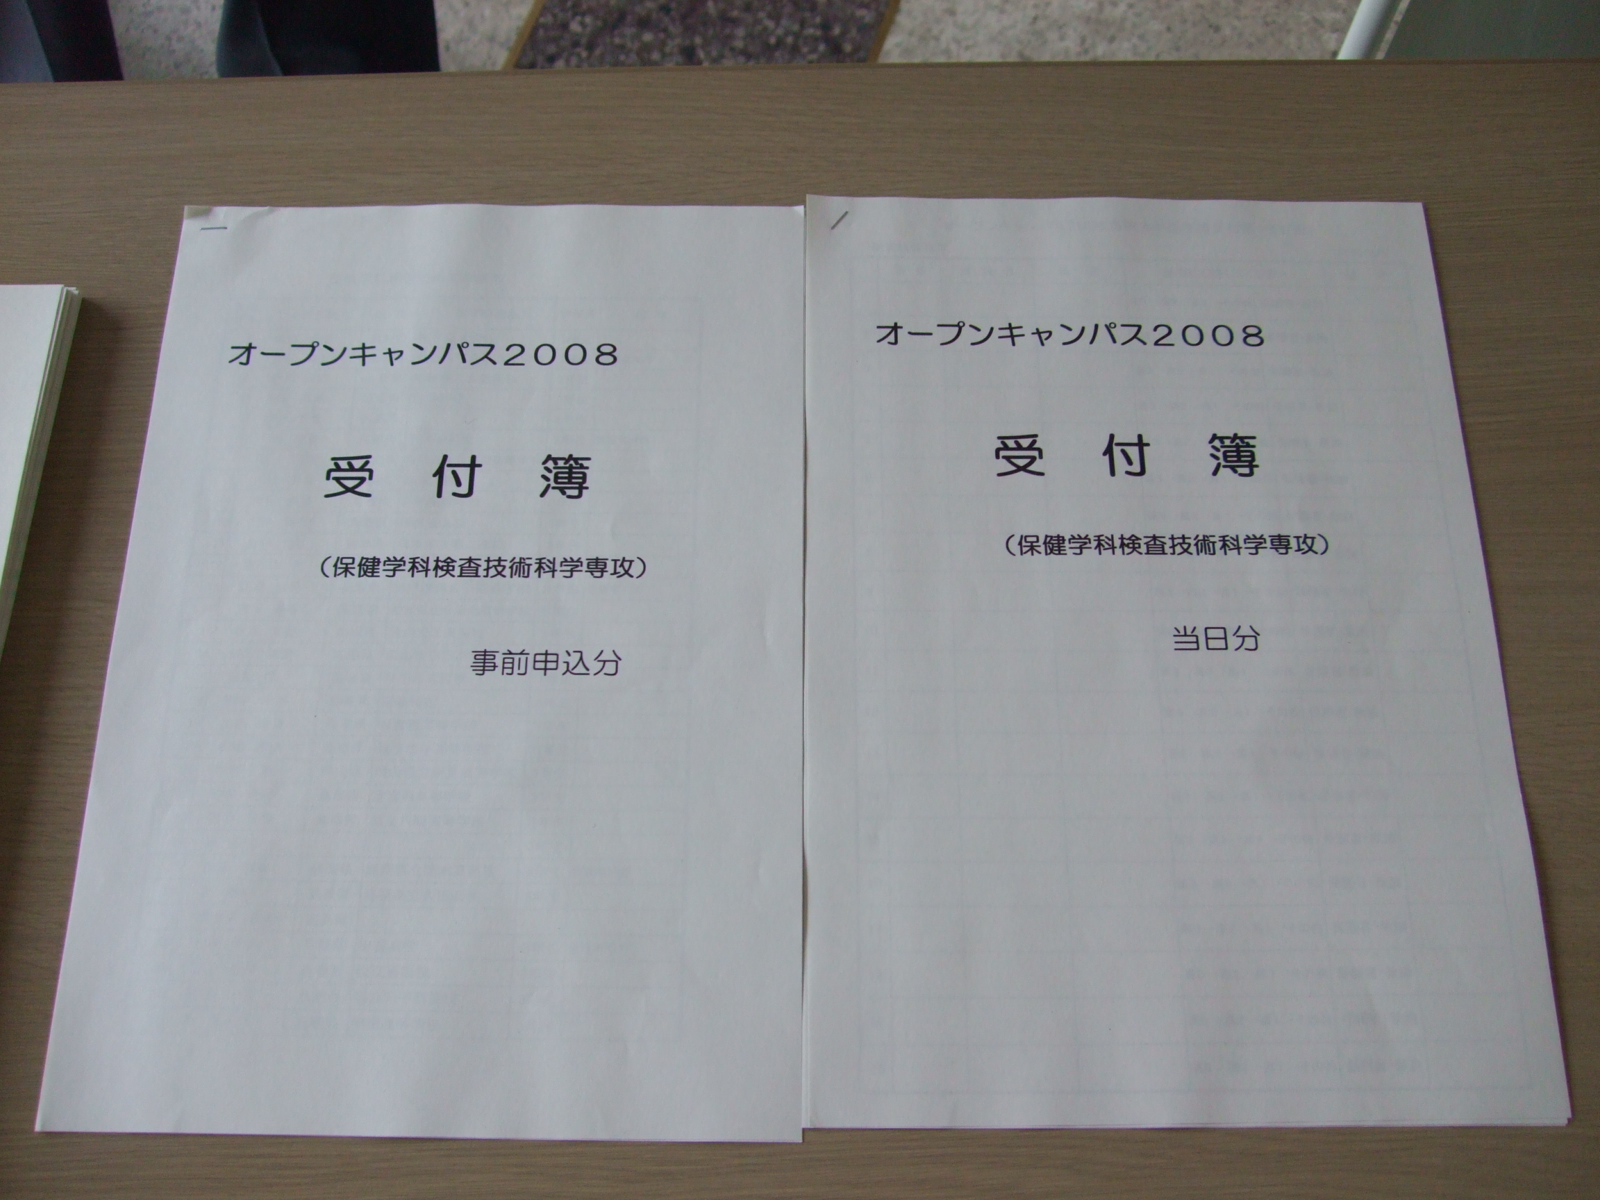 オープンキャンパス２００８
受　付　簿
（保健学科検査技術科学専攻）
事前申込分
オープンキャンパス２００８
受　付　簿
（保健学科検査技術科学専攻）
当日分